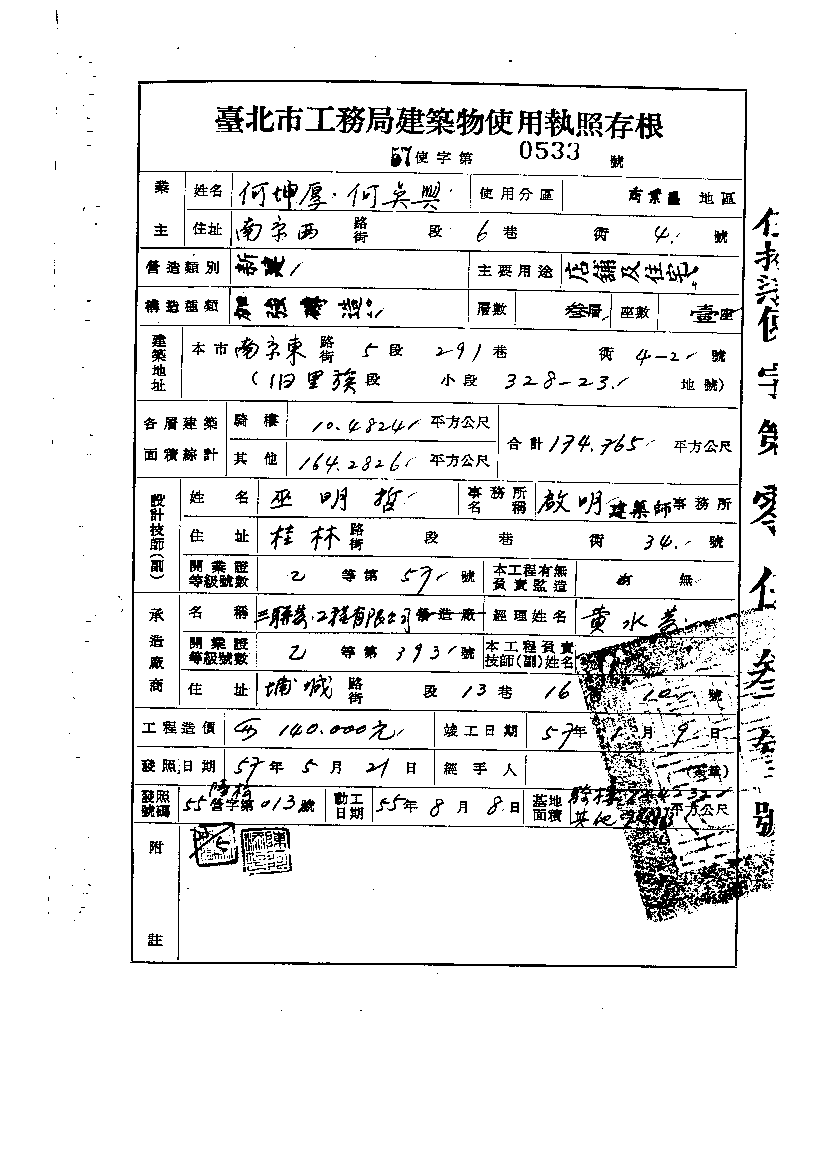 臺北市工務局建築物使用執照存根
57使字第 0533 號
業主 姓名 何坤厚·何吳興 使用分區 商業區 地區
住址 南京西 路街 段 6 巷 衖 4 號
營造類別 新建 主要用途 店舖及住宅
構造種類 加強磚造 層數 叁層 座數 壹座
建築地址 本市 南京東 路街 5 段 291 巷 衖 4-2 號
(旧里族段 小段 328-23 地號)
各層建築面積綜計 騎樓 10.4824 平方公尺 合計 174.765 平方公尺
其他 164.2826 平方公尺
設計技師(副) 姓名 巫明哲 事務所名稱 啟明建築師事務所
住址 桂林 路街 段 巷 衖 34 號
開業證等級號數 乙 等第 57 號 本工程有無負責監造 有 無
承造廠商 名稱 工程有限公司 營造廠 經理姓名 黄水
開業證等級號數 乙 等第 393 號 本工程負責技師(副)姓名
住址 埔城 路街 段 13 巷 16 10 號
工程造價 140.000元 竣工日期 57年 1 月 9 日
發照日期 57年 5 月 21 日 經手人 (蓋章)
發照號碼 55 營字第 013 號 動工日期 55年 8 月 8 日 基地面積 騎樓 其他 平方公尺
附註
使字第零伍叁叁號